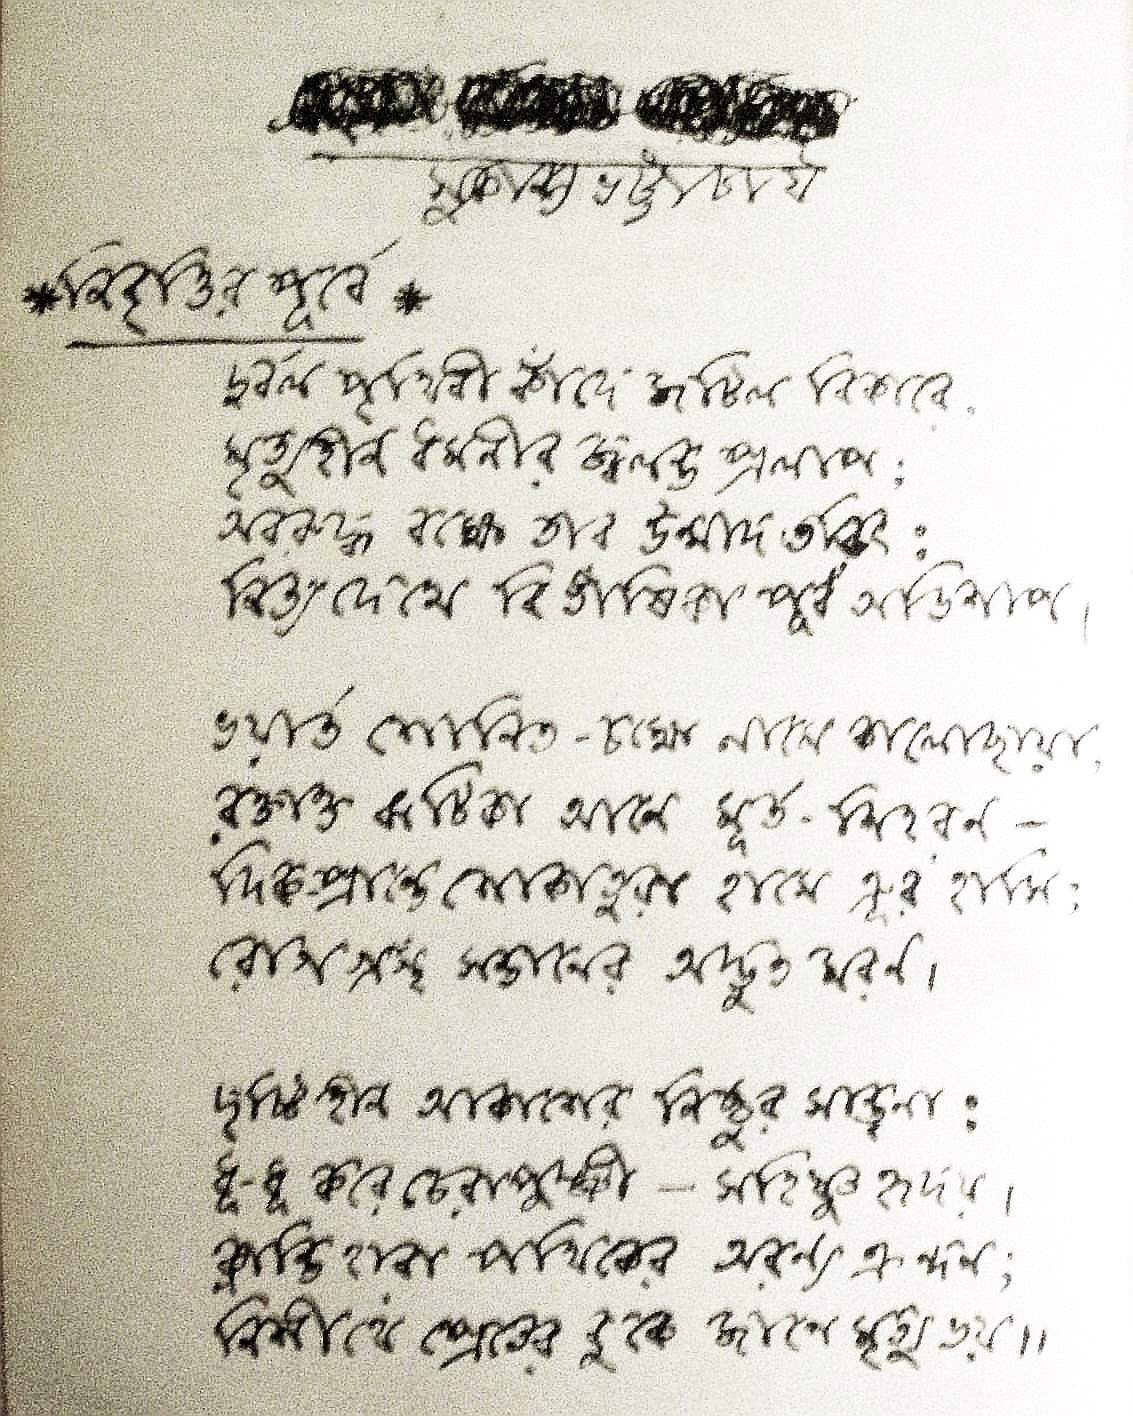 সুকান্ত ভট্টাচার্য
*নিবৃত্তির পূর্বে *
দুর্বল পৃথিবী কাঁদে জটিল বিকারে,
মৃত্যুহীন ধমনীর জ্বলন্ত প্রলাপ;
অবরুদ্ধ বক্ষে তার উন্মাদ তড়িৎ:
নিত্য দেখে বিভীষিকা পূর্ব অভিশাপ।
ভয়ার্ত শোনিত-চক্ষে নামে কালোছায়া,
রক্তাক্ত ঝটিকা আনে মূর্ত-শিহরন –
দিক-প্রান্তে শোকাতুরা হাসে ক্রূর হাসি;
রোগগ্রস্থ সন্তানের অদ্ভুত মরন।
দৃষ্টিহীন আকাশের নিষ্ঠুর সান্ত্বনা:
ধূ-ধূ করে চেরাপুঞ্জী – সহিষ্ণু হৃদয়।
ক্লান্তি হারা পথিকের অরন্য ক্রন্দন;
নিশীথে প্রেতের বুকে জাগে মৃত্যু ভয়॥